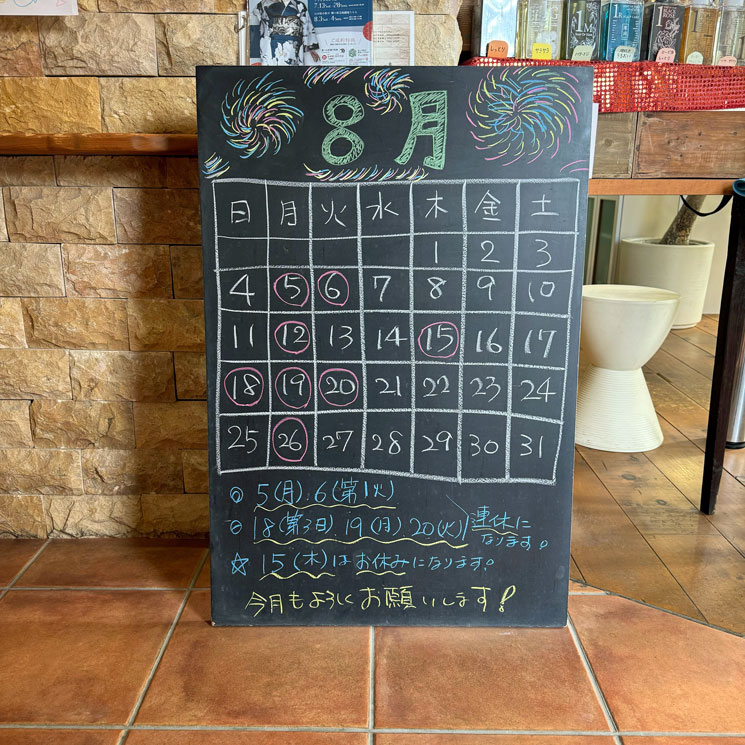 8月
日 月 火 水 木 金 土
1 2 3
4 5 6 7 8 9 10
11 12 13 14 15 16 17
18 19 20 21 22 23 24
25 26 27 28 29 30 31
○ 5(月).6(第1火)
○ 18(第3日).19(月)20(火)
連休に
なります。
☆ 15(木)はお休みになります。
今月もよろしくお願いします!